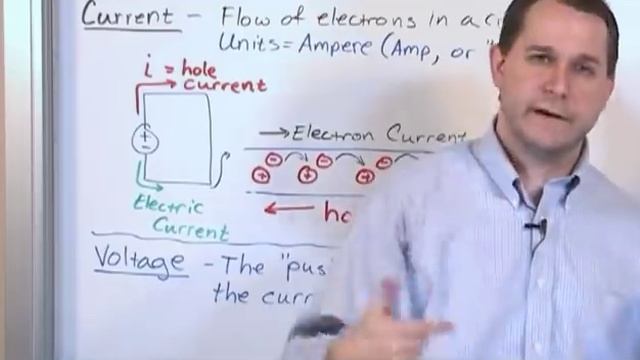 Current - Flow of electrons in a
Units = Ampere (Amp, or "
i = hole
current
+
-
→ Electron Current
- - -
+ + +
←
Electric
Current
Voltage - The
the